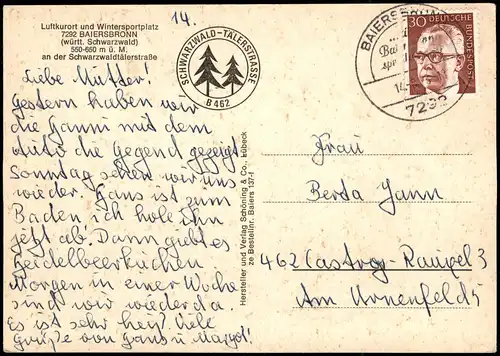 14.
Luftkurort und Wintersportplatz
7292 BAIERSBRONN
(württ. Schwarzwald)
550-660 m ü. M.
an der Schwarzwaldtälerstraße
SCHWARZWALD-TÄLERSTRASSE
B 462
BAIERSBRONN
7292
30
DEUTSCHE BUNDESPOST
Liebe Mutter!
Gestern haben wir
die Hanni mit dem
Auto die Gegend gezeigt
Sonntag sehen wir uns
wieder. Hans ist zum
Baden, ich hole ihn
jetzt ab. Dann gibt es
Heidelbeerkuchen
Morgen in einer Woche
sind wir wieder da.
Es ist sehr heiß. Viele
Grüße von Hans u. Margot.
Hersteller und Verlag Schöning & Co., Lübeck
Bestellnr. Baiers 137-f
Frau
Berta Jann
462 Castrop-Rauxel 3
Am Urnenfeld 5